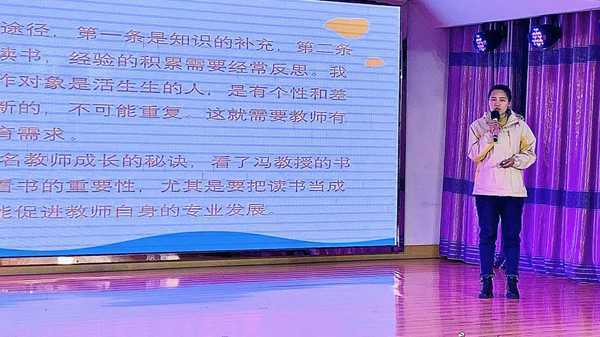 途径，第一条是知识的补充，第二条
读书，经验的积累需要经常反思。我
作对象是活生生的人，是有个性和差
新的，不可能重复。这就需要教师有
育需求。
名教师成长的秘诀，看了冯教授的书
看书的重要性，尤其是要把读书当成
能促进教师自身的专业发展。